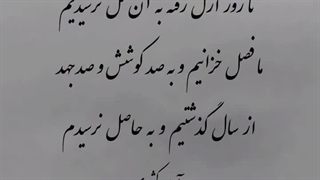 ما روز ازل رفته به آن گل نرسیدیم
ما فصل خزانیم و به صد کوشش و صد جهد
از سال گذشتیم و به حاصل نرسیدم